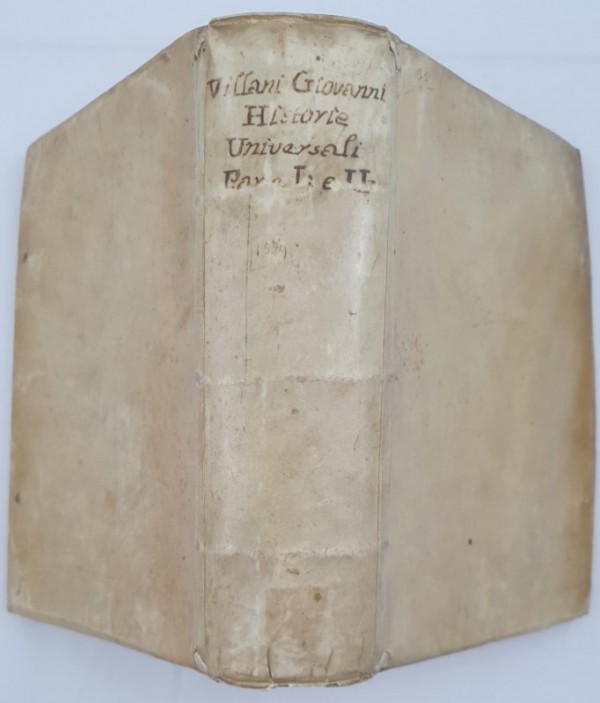 Villani Giovanni
Historie
Universali
I: e II